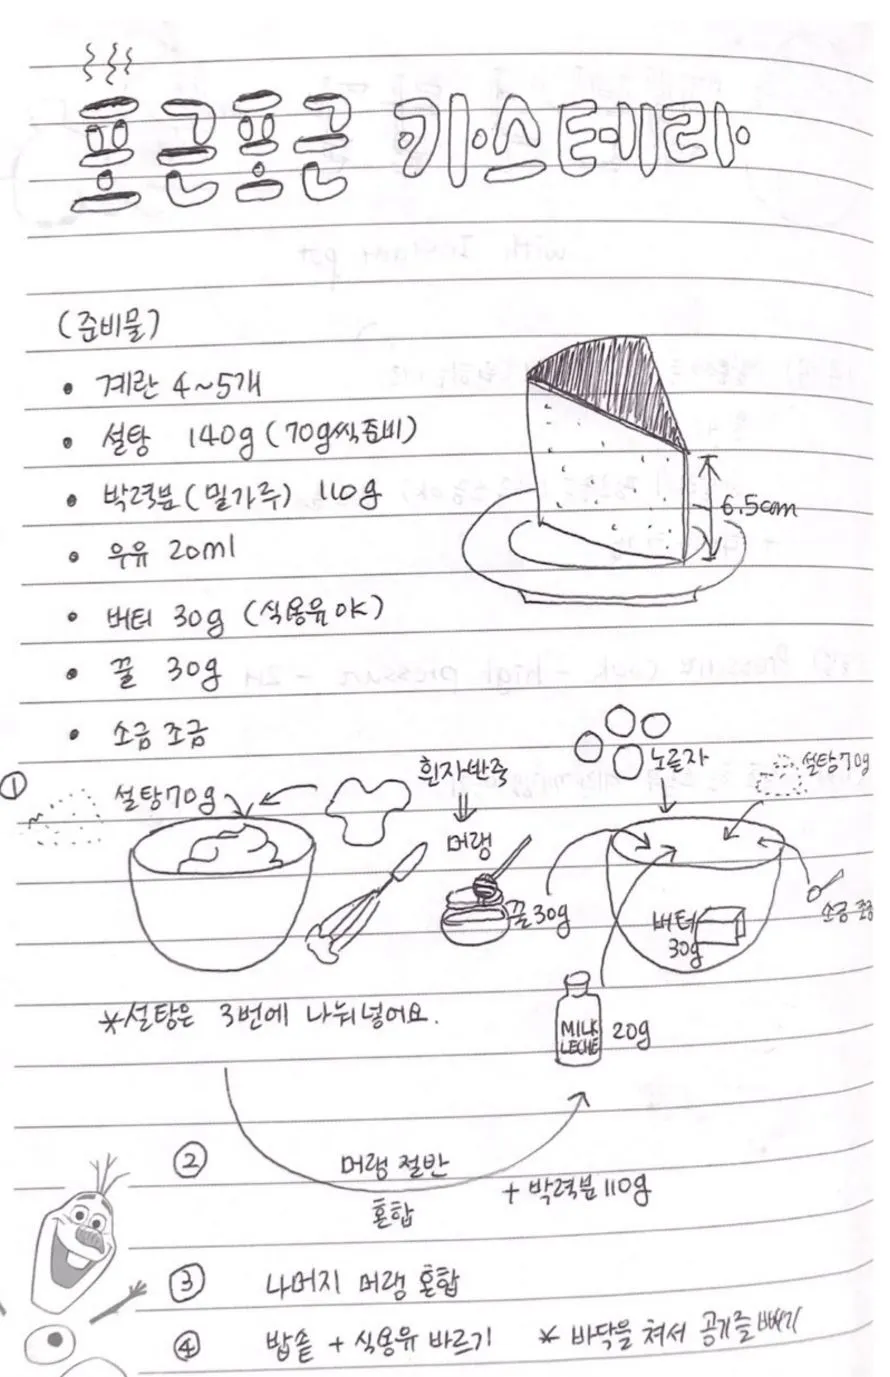 포근포근 카스테라
(준비물)
• 계란 4~5개
• 설탕 140g (70g씩 준비)
• 박력분 (밀가루) 110g
• 우유 20ml
• 버터 30g (식용유 OK)
• 꿀 30g
• 소금 조금
6.5cm
①
설탕70g
흰자반죽
머랭
꿀30g
노른자
설탕70g
소금 조금
버터
30g
MILK
LECHE
20g
*설탕은 3번에 나눠넣어요.
②
머랭 절반
혼합
+ 박력분 110g
③ 나머지 머랭 혼합
④ 밥솥 + 식용유 바르기 * 바닥을 쳐서 공기를 빼기